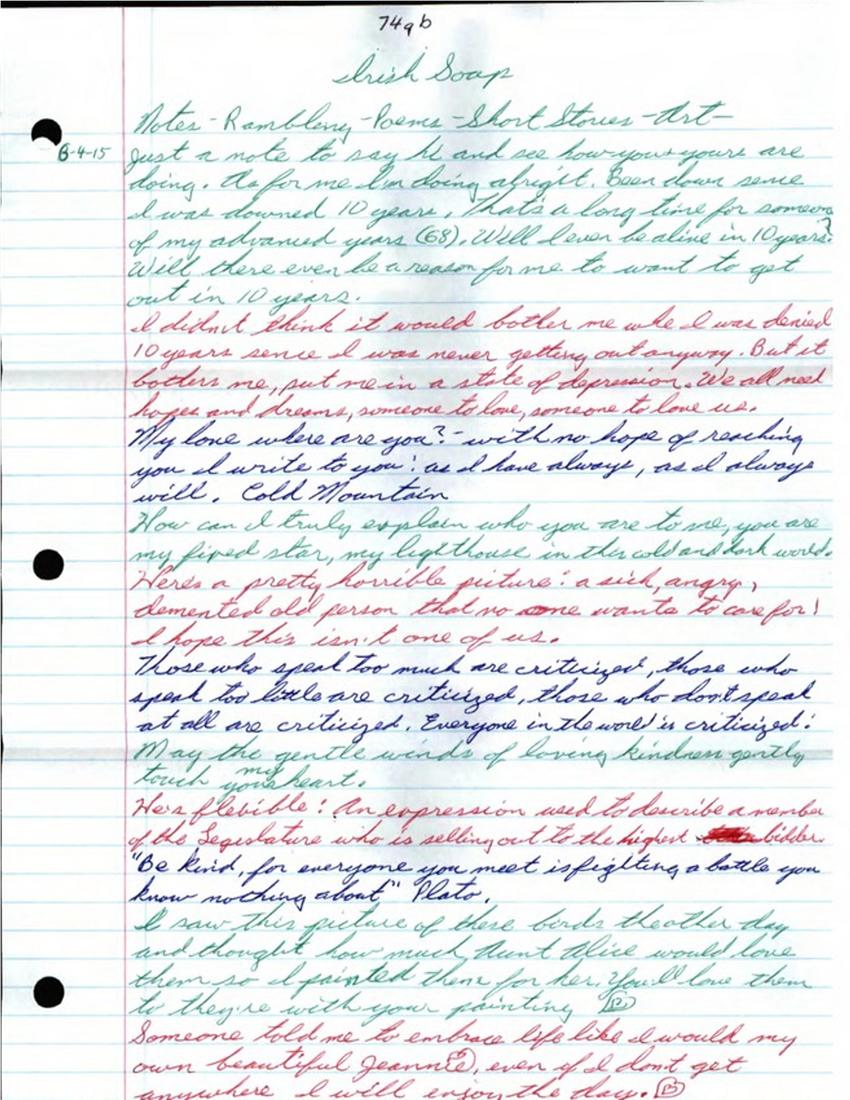 749b
Irish Soap
Notes - Rambling - Poems - Short Stories - Art -
8-4-15
Just a note to say hi and see how you + yours are
doing. As for me I'm doing alright. Been down sence
I was downed 10 years, That's a long time for someone
of my advanced years (68). Will I even be alive in 10 years?
Will there even be a reason for me to want to get
out in 10 years.
I didn't think it would bother me whe I was denied
10 years sence I was never getting out anyway. But it
bothers me, put me in a state of depression. We all need
hopes and dreams, someone to love, someone to love us.
My love where are you? - with no hope of reaching
you I write to you! as I have always, as I always
will. Cold Mountain
How can I truly explain who you are to me, you are
my fixed star, my lighthouse in this cold and dark world.
Here's a pretty horrible picture! a sick, angry,
demented old person that no one wants to care for!
I hope this isn't one of us.
Those who speak too much are criticized, those who
speak too little are criticized, those who don't speak
at all are criticized. Everyone in the world is criticized!
May the gentle winds of loving kindness gently
touch my your heart.
He's flexible! An expression used to describe a member
of the Legislature who is selling out to the highest bidder.
"Be kind, for everyone you meet is fighting a battle you
know nothing about" Plato.
I saw this picture of these birds the other day
and thought how much Aunt Alice would love
them so I painted them for her. You'll love them
to they're with your painting
Someone told me to embrace life like I would my
own beautiful JeannE, even if I don't get
anywhere I will enjoy the day.